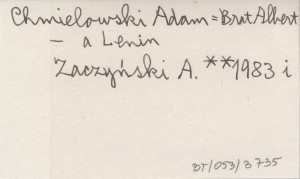 Chmielowski Adam = Brat Albert
- a Lenin
Zaczyński A. **1983 i
BT/053/3735